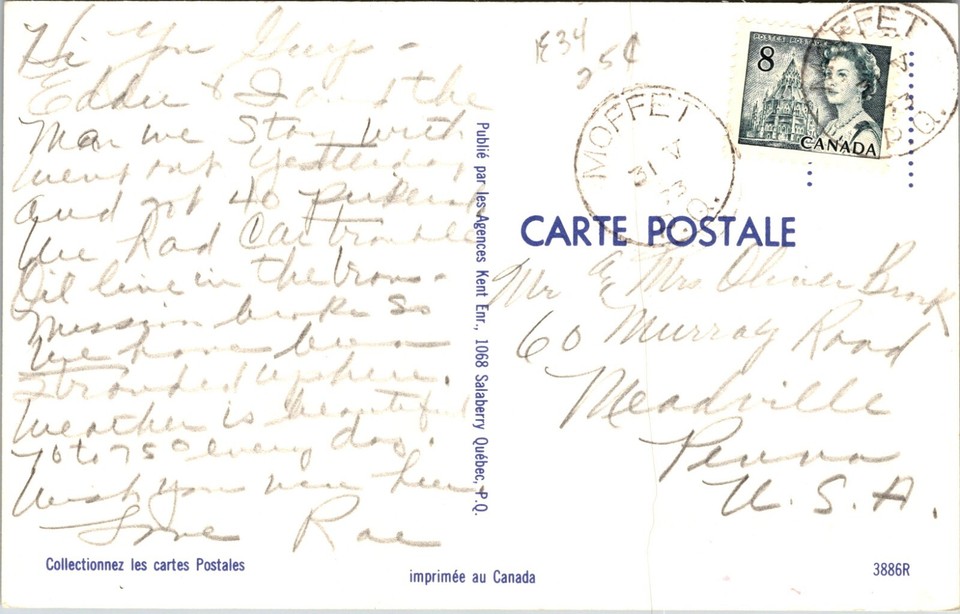 Hi You Guys -
Eddie & I and the
Man we Stay with
went out yesterday
and got 40 pickerel
We had car trouble
Oil line in the trans-
mission broke so
we have been
stranded up here.
Weather is beautiful
70 to 75° every day.
Wish you were here
Love Rae
Publié par les Agences Kent Enr., 1068 Salaberry Québec, P.Q.
25¢
MOFFET
31 V
P.Q.
8
POSTES POSTAGE
CANADA
CARTE POSTALE
Mr & Mrs Oliver
60 Murray Road
Meadville
Penna
U.S.A.
Collectionnez les cartes Postales
imprimée au Canada
3886R